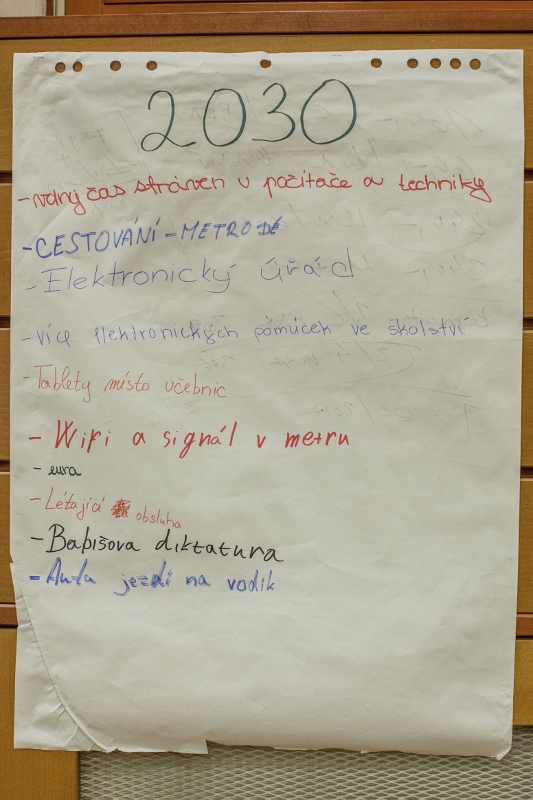 2030
- volný čas stráven u počítače a techniky
- CESTOVÁNÍ - METRO D
- Elektronický úřad
- více elektronických pomůcek ve školství
- Tablety místo učebnic
- Wifi a signál v metru
- eura
- Létající obsluha
- Babišova diktatura
- Auta jezdí na vodík